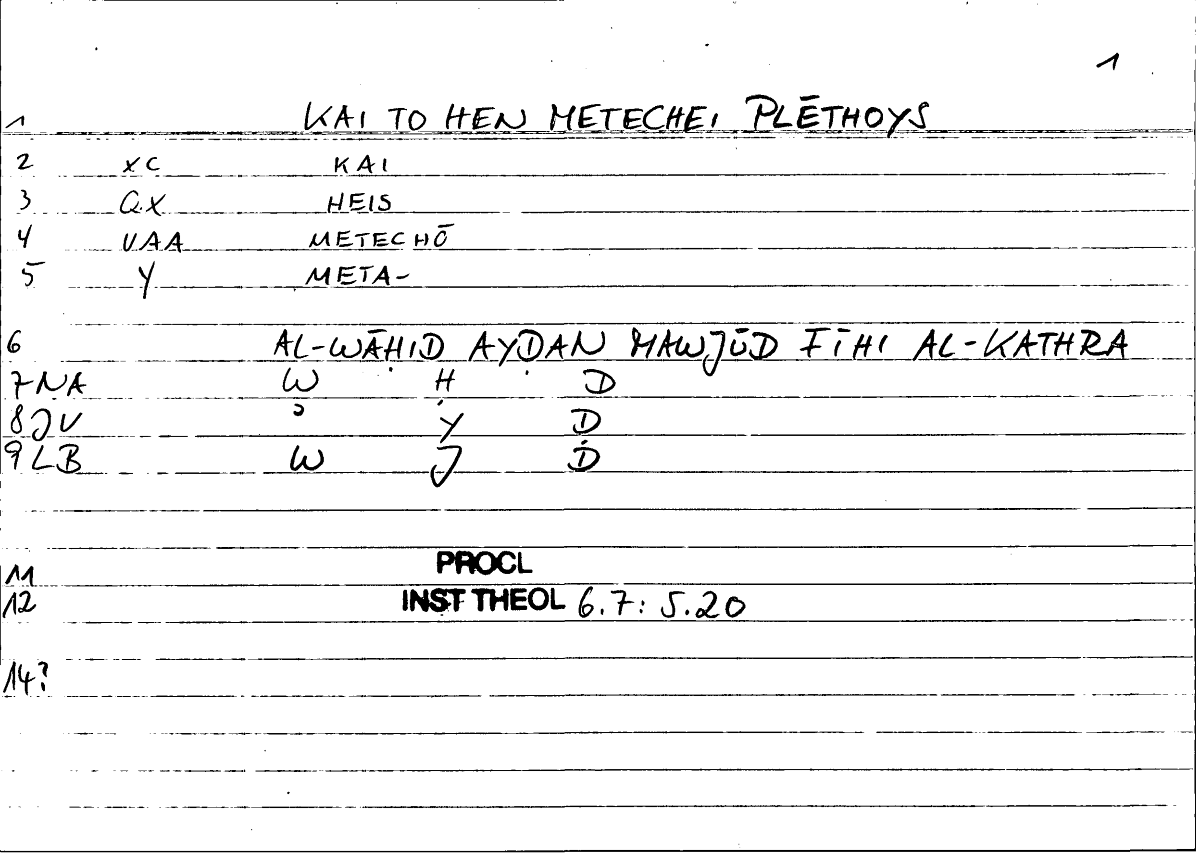 1
1 KAI TO HEN METECHEI PLĒTHOYS
2 XC KAI
3 QX HEIS
4 VAA METECHŌ
5 Y META-
6 AL-WĀḤID AYḌAN MAWJŪD FĪHI AL-KATHRA
7 NA W Ḥ D
8 JV ʾ Y Ḍ
9 LB W J D
11 PROCL
12 INST THEOL 6.7: 5.20
14?